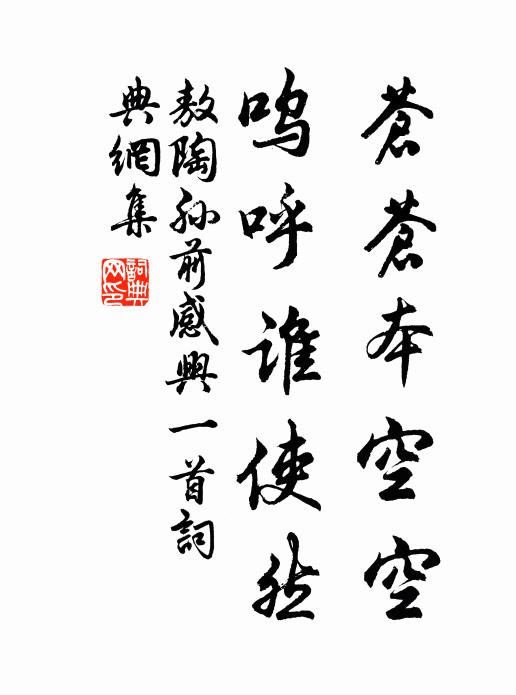 蒼蒼本空空
嗚呼誰使然
敖陶孫前感興一首詞
典網集
詞典
网印